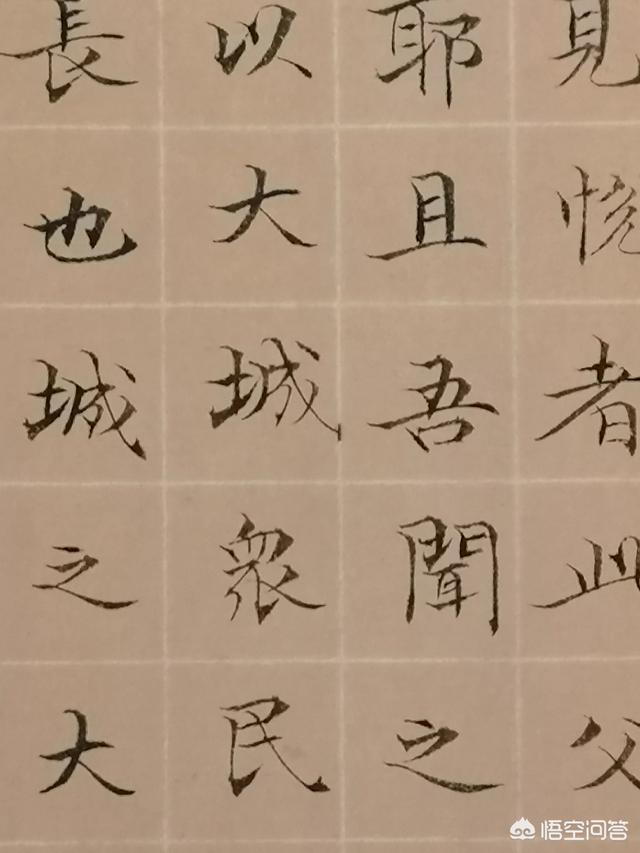 見悦者此父
耶且吾聞之
以大城眾民
長也城之大
悟空问答